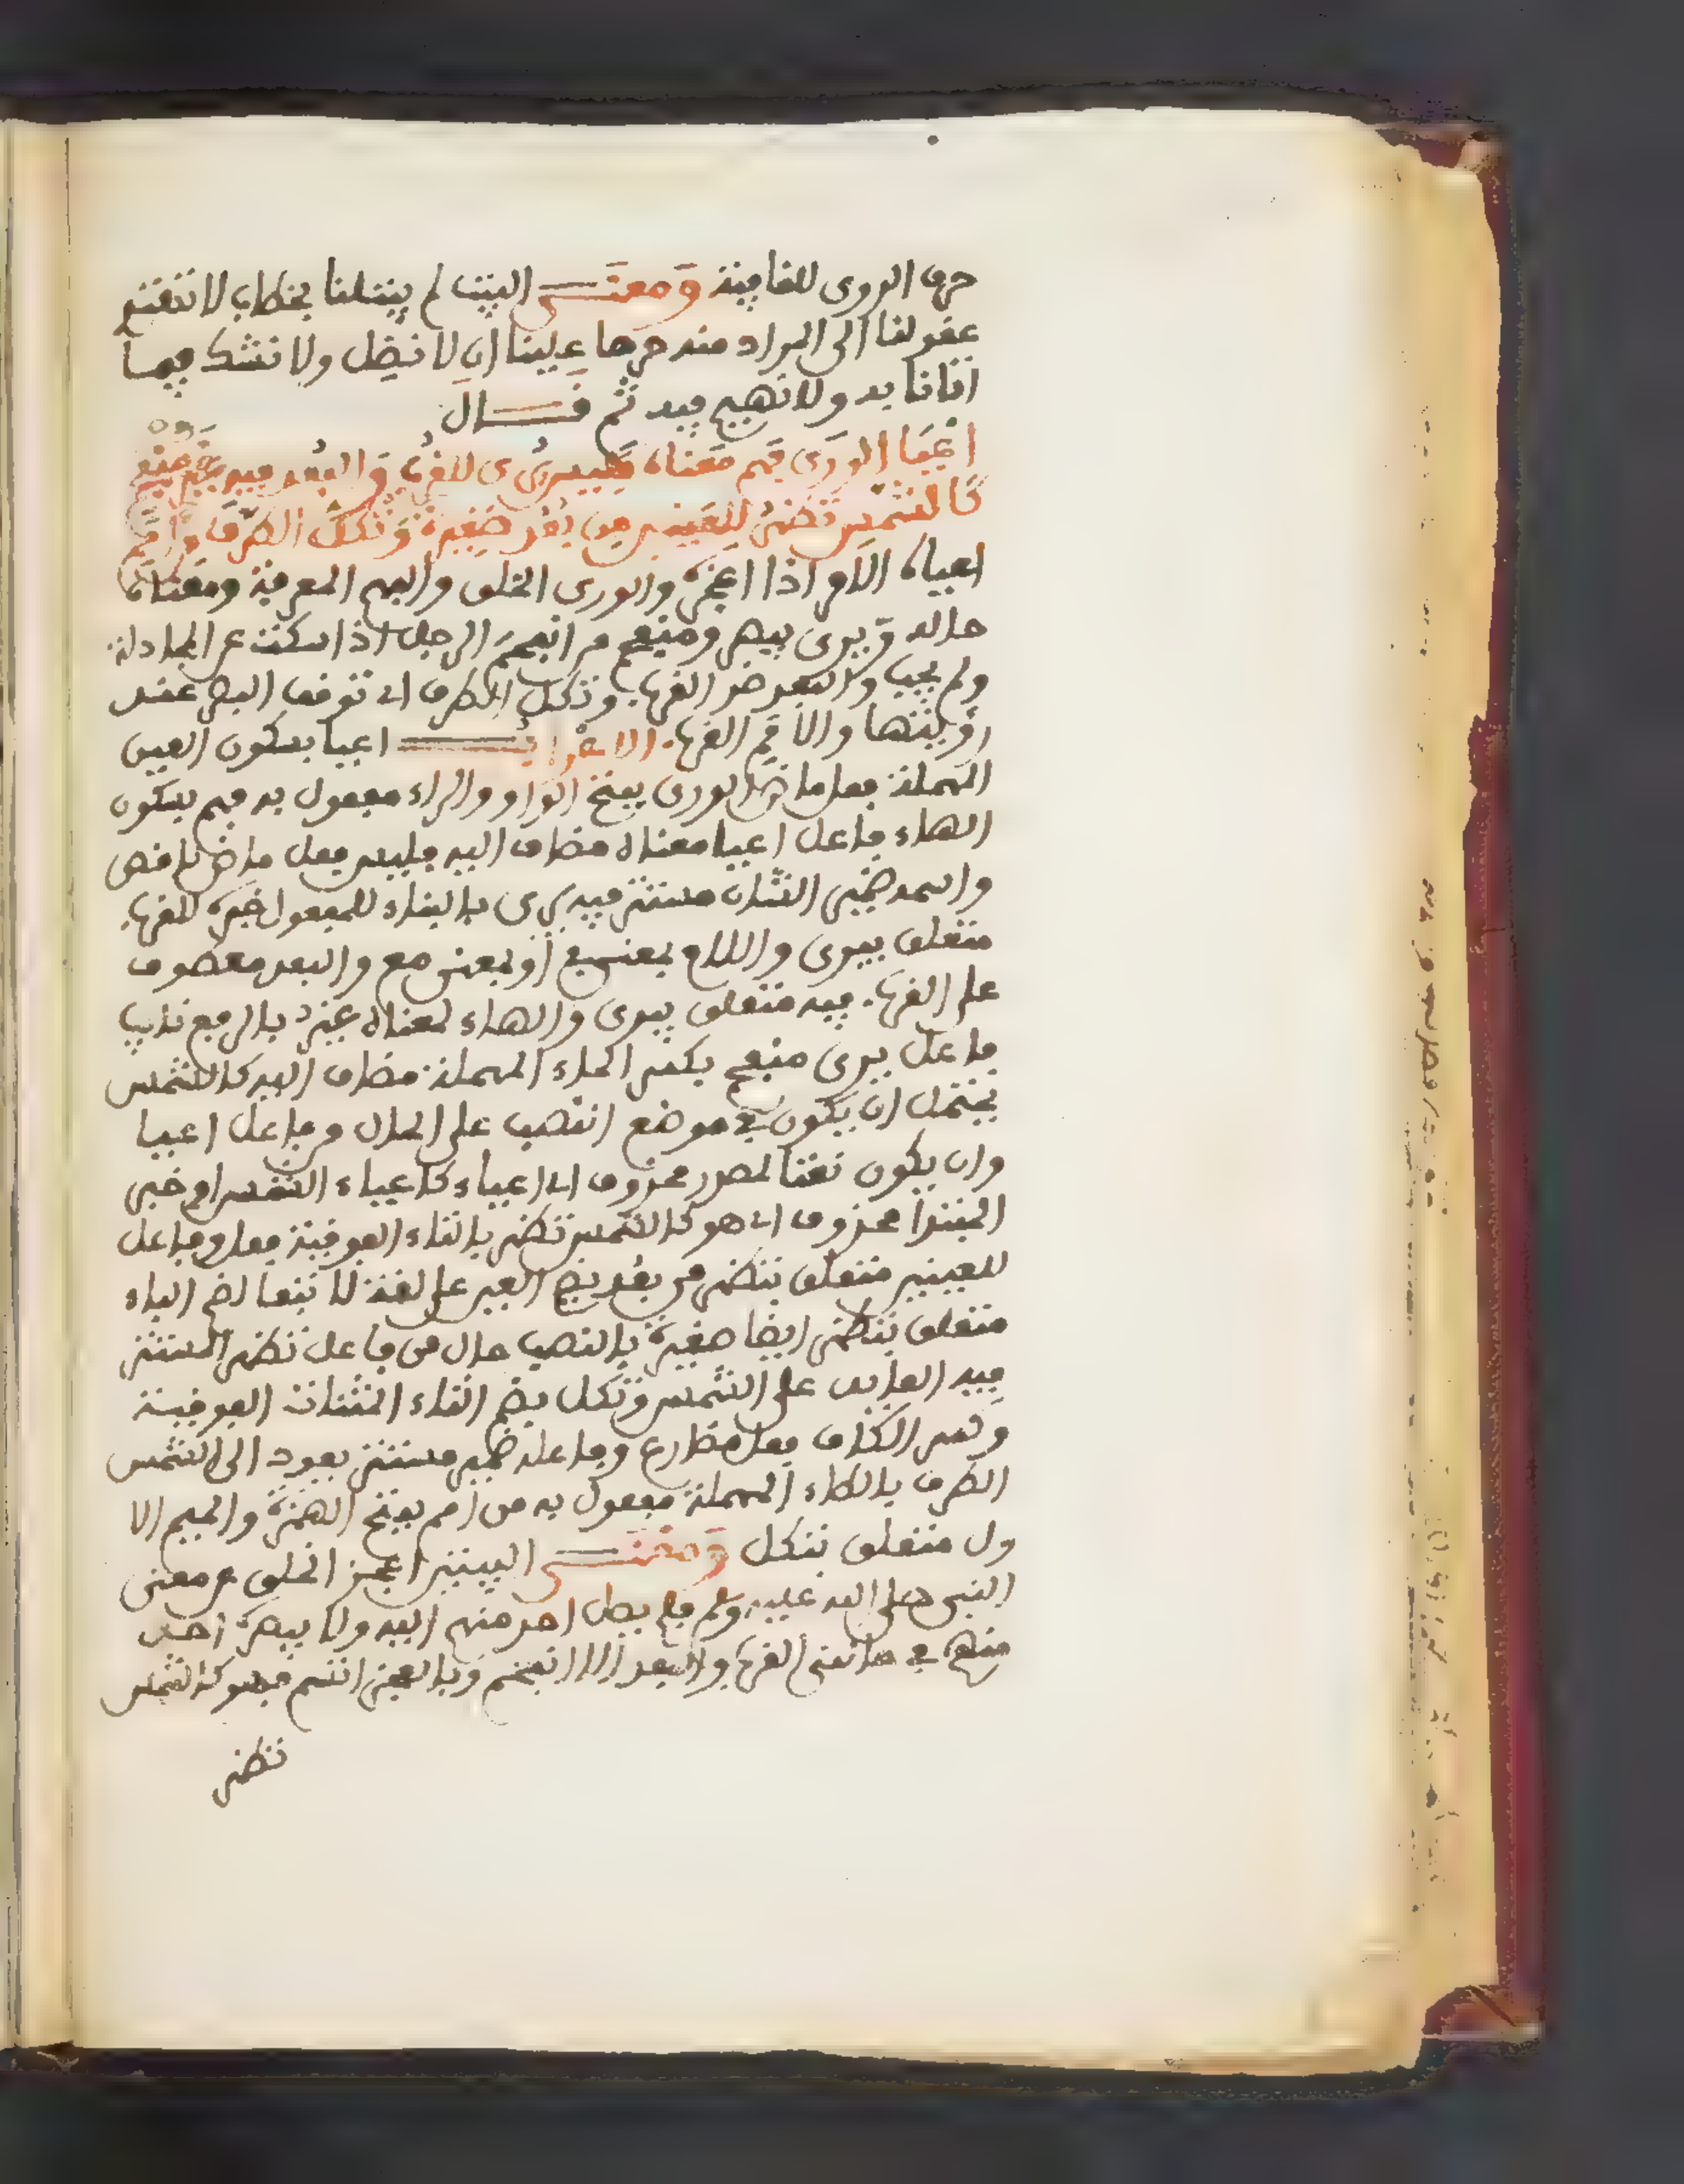 حرف الروى للقافية ومعنـــى البيت لم يبتلنا بخطاب لا تهتدى
عقولنا الى المراد منه حرصا علينا ان لا نضل ولا نشك فيما
اتانا به ولا نهيم فيه ثم قـــال
اَعْيَا الورَى فَهم مَعْناه فَلَيسَ يُرى للقُرْب وَالبُعد فيه غير منفحم
كَالشمس تَظهَرُ للعَينين من بُعُد صَغيرةً وَتُكلُّ الطرفَ من اَمَم
اعياه الامر اذا اعجزه والورى الخلق والفهم المعرفة ومعناه
حاله ويرى يبصر ومنفحم من انفحم الرجل اذا سكت عن المجادلة
ولم يجب والبعد ضد القرب وتكل الطرف اى توقف البصر عند
رؤيتها والامم القرب الاعرابـــ اعيا بسكون العين
المهملة فعل ماض الورى بفتح الواو والراء مفعول به فهم بسكون
الهاء فاعل اعيا معناه مضاف اليه فليس فعل ماض ناقص
واسمه ضمير الشان مستتر فيه يرى بالبناء للمفعول خبره للقرب
متعلق بيرى واللام بمعنى فى او بمعنى مع والبعد معطوف
على القرب فيه متعلق بيرى والهاء لمعناه غير بالرفع نايب
فاعل يرى منفحم بكسر الحاء المهملة مضاف اليه كالشمس
يحتمل ان يكون فى موضع النصب على الحال من فاعل اعيا
وان يكون نعتا لمصدر محذوف اى اعياء كاعياء الشمس او خبر
المبتدا محذوف اى هو كالشمس تظهر بالتاء الفوقية فعل وفاعل
للعينين متعلق بتظهر من بعد بضم العين على لغة لا تبعا لضم الباء
متعلق بتظهر ايضا صغيرة بالنصب حال من فاعل تظهر المستتر
فيه العايد على الشمس وتكل بضم التاء المثناة الفوقية
وكسر الكاف فعل مضارع وفاعله ضمير مستتر يعود الى الشمس
الطرف بالطاء المهملة مفعول به من امم بفتح الهمزة والميم الا
ول متعلق بتكل ومعنـــى البيتين اعجز الخلق عن معنى
النبى صلى الله عليه وسلم فلم يصل احد منهم اليه ولا يبصر احد
منهم فى حالتى القرب والبعد الا انفحم وبالعجز اتسم فهو كالشمس
تظهر